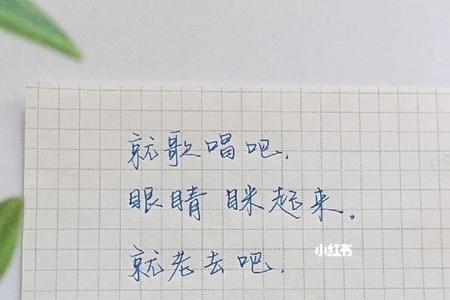 就歌唱吧.
眼睛眯起来。
小红书
就老去吧.